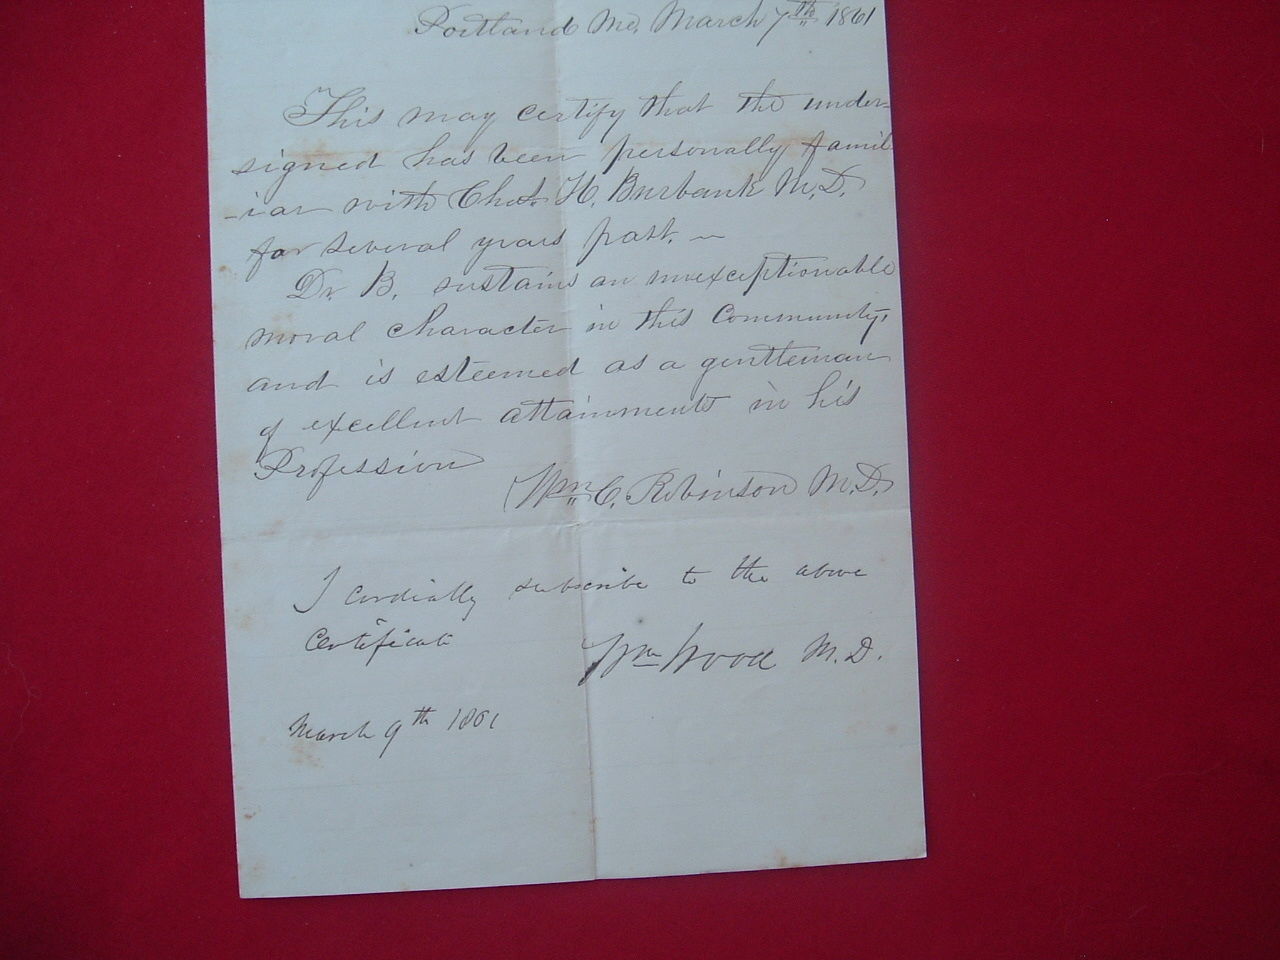 Portland Me, March 7th 1861
This may certify that the under-
signed has been personally famil
-iar with Chas. H. Burbank M.D.
for several years past. ~
Dr B. sustains an unexceptionable
moral character in this Community,
and is esteemed as a gentleman
of excellent attainments in his
Profession
Wm C. Robinson M.D.
I cordially subscribe to the above
Certificate
Wm Wood M.D.
March 9th 1861